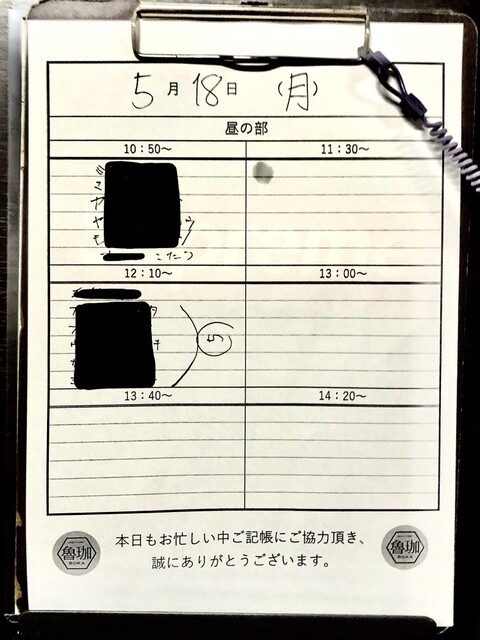 5月18日 (月)
昼の部
10:50～ 11:30～
こたつ
12:10～ 13:00～
5
13:40～ 14:20～
本日もお忙しい中ご記帳にご協力頂き、
誠にありがとうございます。
魯珈 魯珈
ROKA ROKA